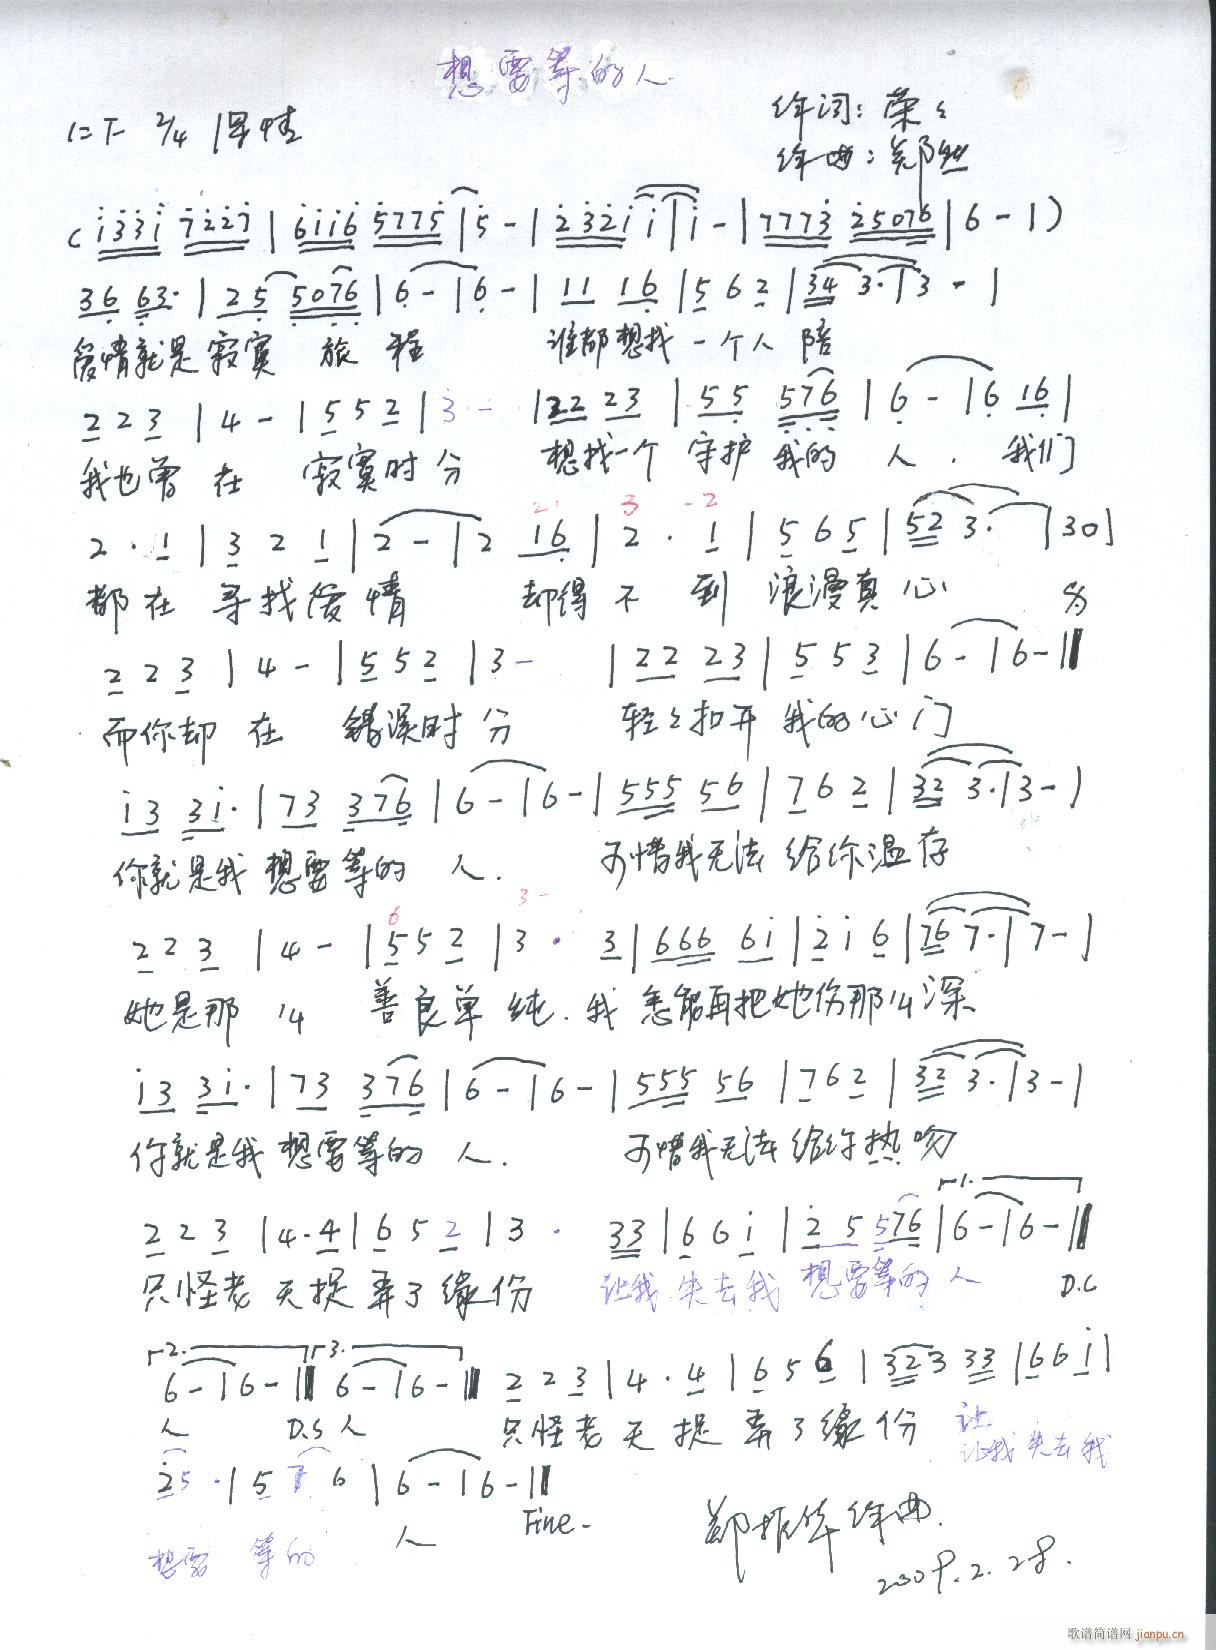 想要等的人
1=F 2/4 深情
作词：荣々
作曲：郑然
( i33i 7227 | 6ii6 5775 | 5 - | 232i i | i - | 7773 25076 | 6 - 1 )
36 63· | 25 5076 | 6 - | 6 - | 11 16 | 5 6 2 | 34 3· | 3 - |
爱情就是寂寞 旅 程 谁都想找 一个人 陪
2 2 3 | 4 - | 5 5 2 | 3 - | 22 23 | 55 576 | 6 - | 6 16 |
我也曾 在 寂寞时分 想找一个 守护 我的 人. 我们
2· 3 - 2
2 · 1 | 3 2 1 | 2 - | 2 16 | 2 · 1 | 5 6 5 | 52 3· | 30 |
都在 寻找爱情 却得 不 到 浪漫真心
2 2 3 | 4 - | 5 5 2 | 3 - | 22 23 | 5 5 3 | 6 - | 6 - ‖
而你却 在 错误时 分 轻々扣开 我的心门
i3 3i· | 73 376 | 6 - | 6 - | 555 56 | 7 6 2 | 32 3· | 3 - |
你就是我 想要等的 人. 可惜我无法 给你温存
6 3 -
2 2 3 | 4 - | 5 5 2 | 3 · 3 | 666 6i | 2 i 6 | 76 7· | 7 - |
她是那 么 善良单 纯. 我 怎能再把她伤那么深
i3 3i· | 73 376 | 6 - | 6 - | 555 56 | 7 6 2 | 32 3· | 3 - |
你就是我 想要等的 人. 可惜我无法 给你热吻
1.
2 2 3 | 4· 4 | 6 5 2 | 3 · 33 | 6 6 i | 2 5 576 | 6 - | 6 - ‖
只怪老 天捉弄了缘份 让我 失去我 想要等的 人 D.C
2. 3.
6 - | 6 - ‖ 6 - | 6 - ‖ 2 2 3 | 4 · 4 | 6 5 6 | 323 33 | 6 6 i |
人 D.S 人 只怪老 天 捉 弄了缘 份 让
让我 失去我
25 · | 5 7 6 | 6 - | 6 - ‖
想要 等的 人 Fine.
郑振华作曲.
2009.2.28.
歌谱简谱网 jianpu.cn